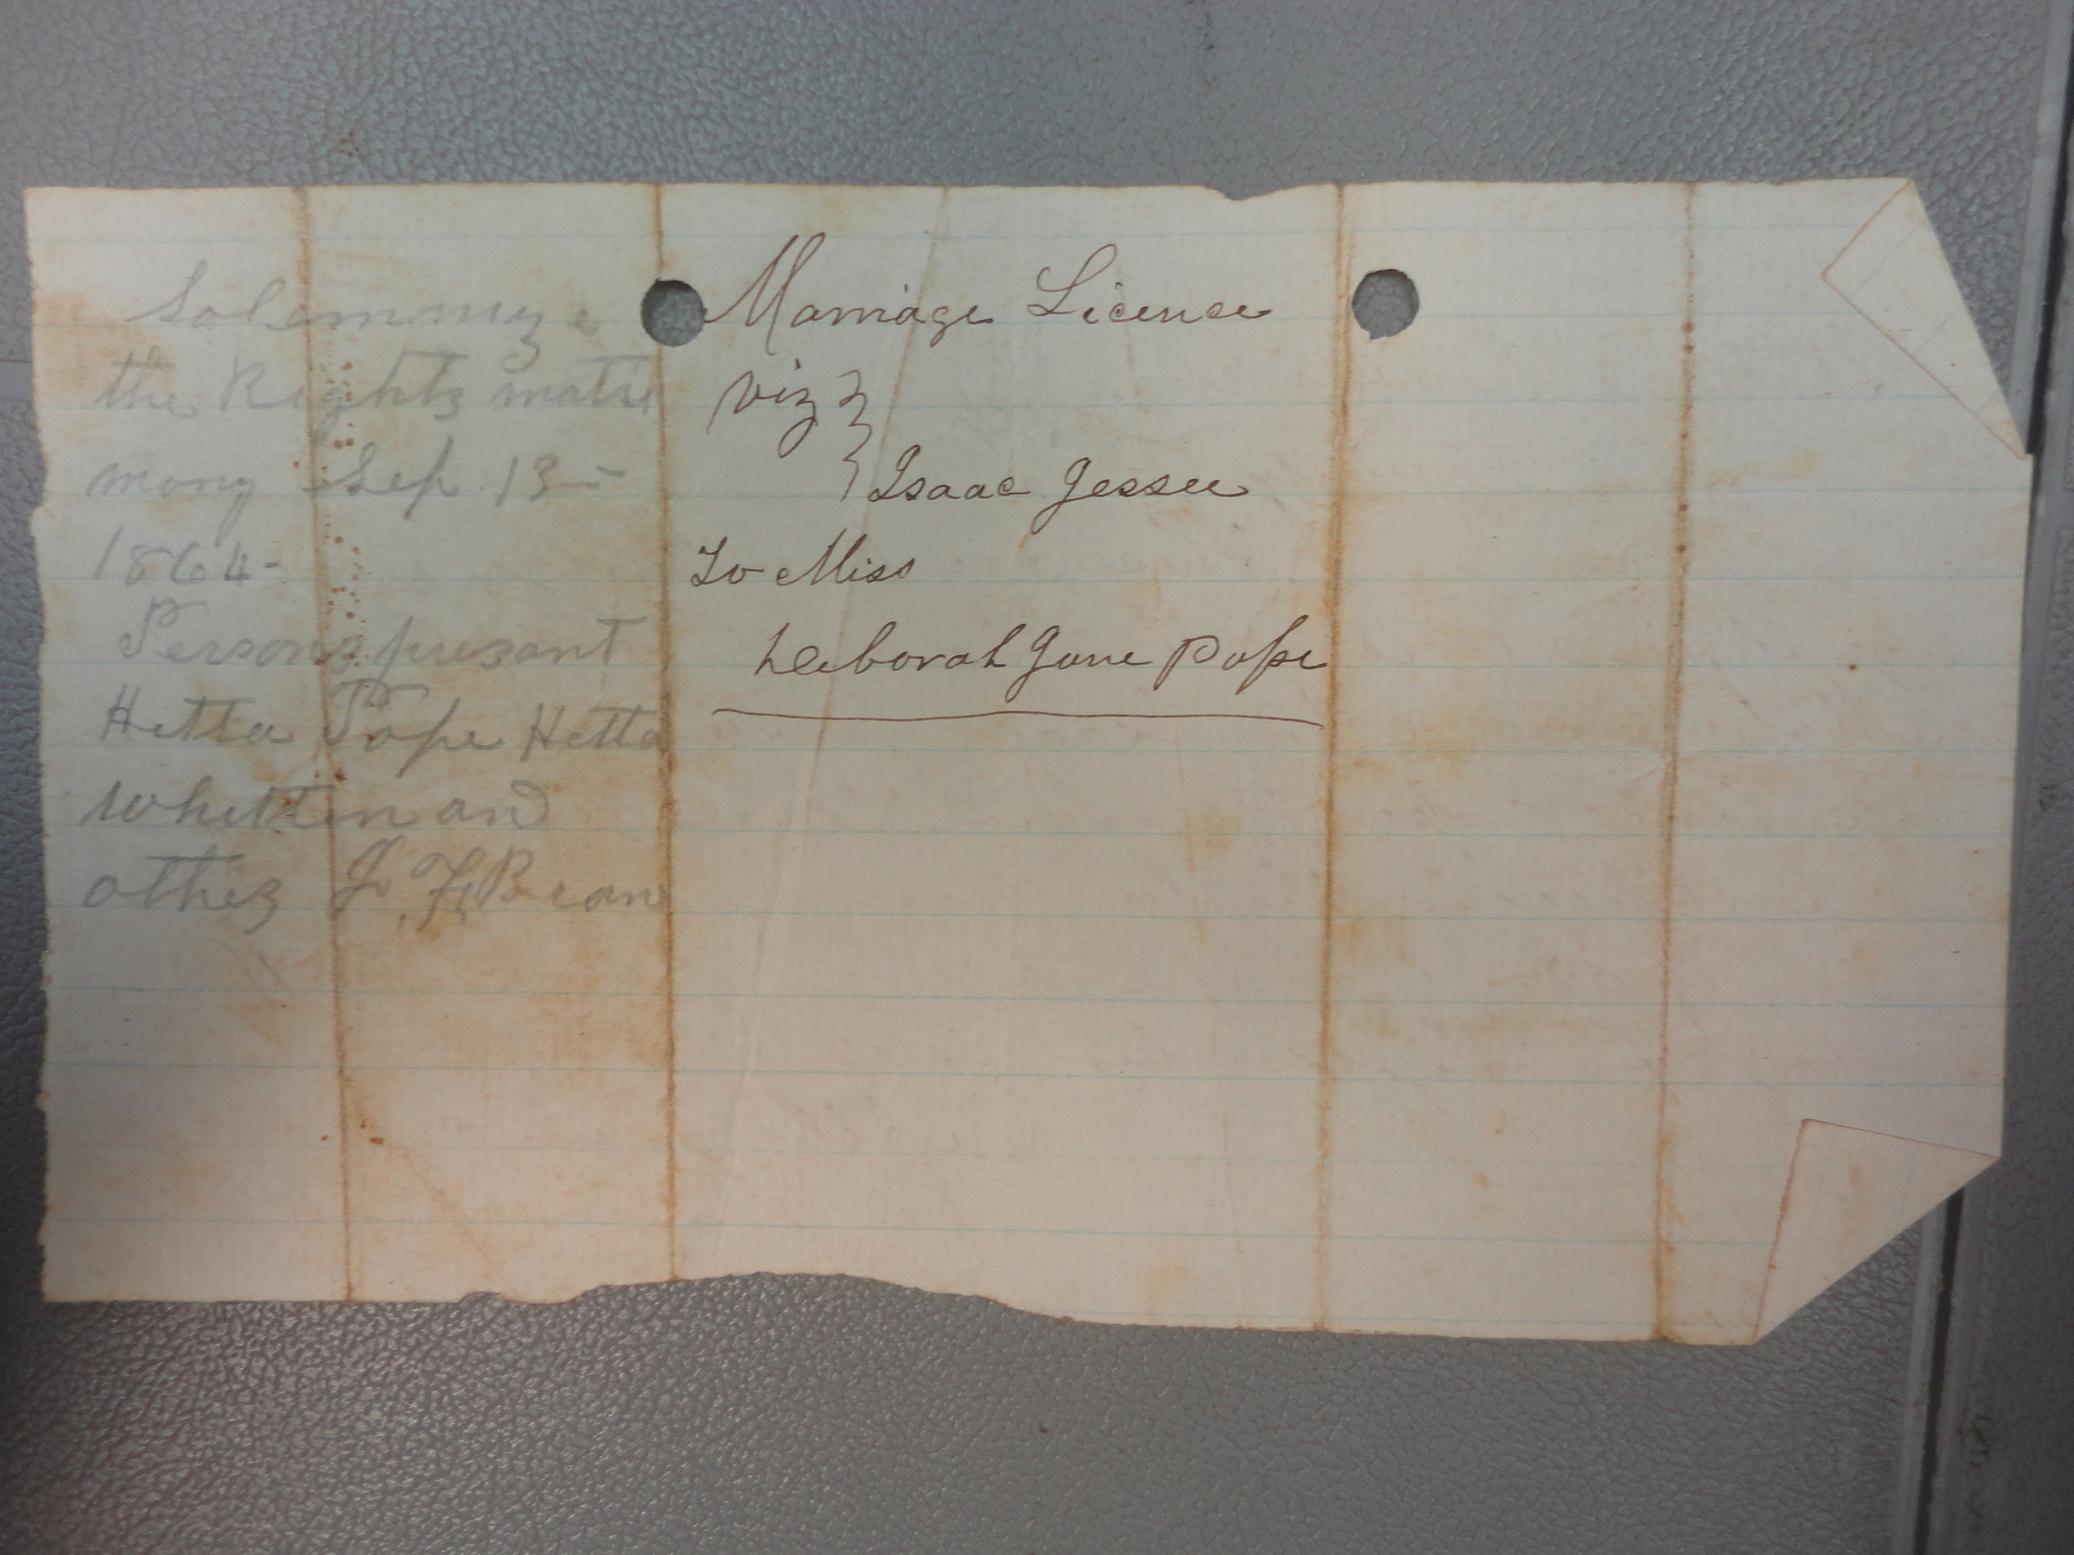 Solemnize
the Rights matri
mony Sep 13-
1864-
Persons presant
Hetta Pope Hetta
Whitten and
others J. F. Bean
Marriage License
viz
Isaac Jessee
To Miss
Deborah Jane Pope